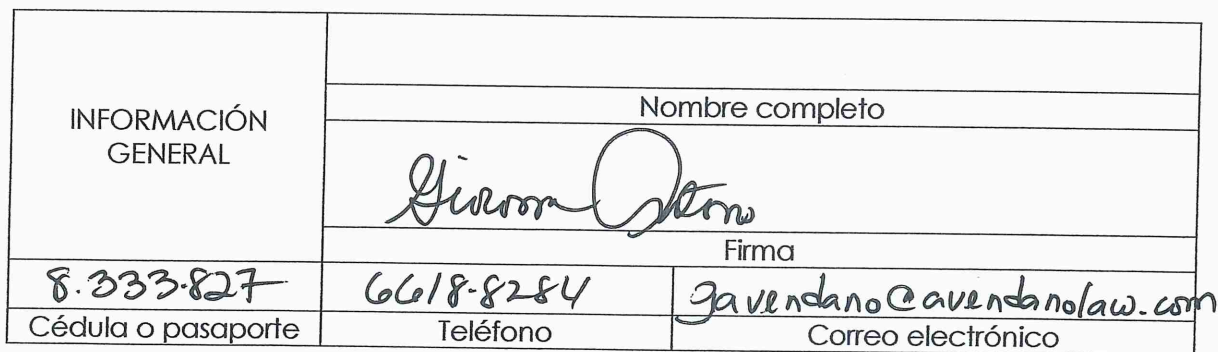 INFORMACIÓN
GENERAL
Nombre completo
Firma
8.333.827
6618-8284
gavendano@avendanolaw.com
Cédula o pasaporte
Teléfono
Correo electrónico